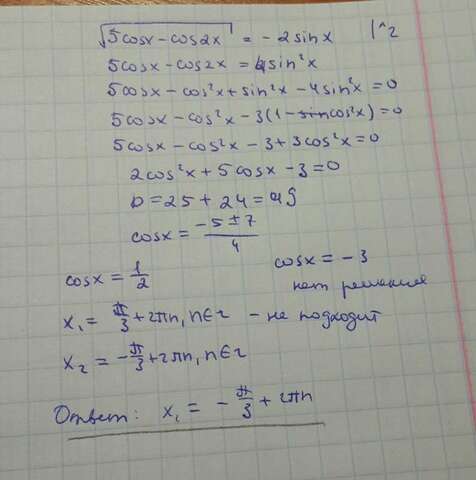 √(5cosx - cos2x) = - 2sinx |^2
5cosx - cos2x = 4sin²x
5cosx - cos²x + sin²x - 4sin²x = 0
5cosx - cos²x - 3(1 - cos²x) = 0
5cosx - cos²x - 3 + 3cos²x = 0
2cos²x + 5cosx - 3 = 0
D = 25 + 24 = 49
cosx = (-5 ± 7)/4
cosx = 1/2 cosx = - 3
нет решения
x₁ = π/3 + 2πn, n∈z - не подходит
x₂ = - π/3 + 2πn, n∈z
Ответ: x₁ = - π/3 + 2πn